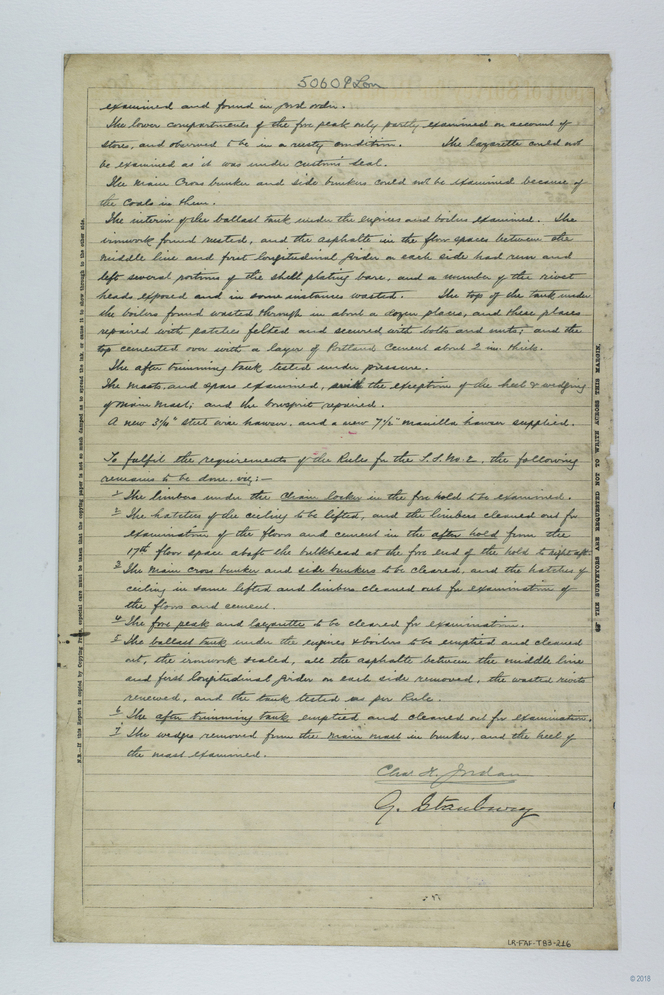 50609 Lon
examined and found in good order.
The lower compartments of the fore peak only partly examined on account of
stores, and observed to be in a rusty condition. The lazarette could not
be examined as it was under customs seal.
The Main Cross bunker and side bunkers could not be examined because of
the coals in them.
The interior of the ballast tank under the engines and boilers examined. The
ironwork found rusted, and the asphalte in the floor spaces between the
middle line and first longitudinal girder on each side had run and
left several portions of the shell plating bare, and a number of the rivet
heads exposed and in some instances wasted. The top of the tank under
the boilers found wasted through in about a dozen places, and these places
repaired with patches felted and secured with bolts and nuts; and the
top cemented over with a layer of Portland Cement about 2 in. thick.
The after trimming tank tested under pressure.
The masts, and spars examined, with the exception of the heel & wedging
of main mast; and the bowsprit repaired.
A new 3¾" steel wire hawser, and a new 7½" manilla hawser supplied.
To fulfil the requirements of the Rules for the S.S. No. 2, the following
remains to be done. viz:—
1 The limbers under the chain locker in the fore hold to be examined.
2 The hatches of the ceiling to be lifted, and the limbers cleaned out for
examination of the floors and cement in the after hold from the
17th floor space abaft the bulkhead at the fore end of the hold to right aft.
3 The main cross bunker and side bunkers to be cleared, and the hatches of
ceiling in same lifted and limbers cleaned out for examination of
the floors and cement.
4 The fore peak and lazarette to be cleared for examination.
5 The ballast tank under the engines & boilers to be emptied and cleaned
out, the ironwork scaled, all the asphalte between the middle line
and first longitudinal girder on each side removed, the wasted rivets
renewed, and the tank tested as per Rule.
6 The after trimming tank emptied and cleaned out for examination.
7 The wedges removed from the main mast in bunker, and the heel of
the mast examined.
Chas H. Jordan
G. Stanbury
N.B.—If this Report is copied by Copying Press, especial care must be taken that the copying paper is not so much damped as to spread the ink, or cause it to show through to the other side.
THE SURVEYORS ARE REQUESTED NOT TO WRITE ACROSS THIS MARGIN.
LR-FAF-TB3-216
© 2018